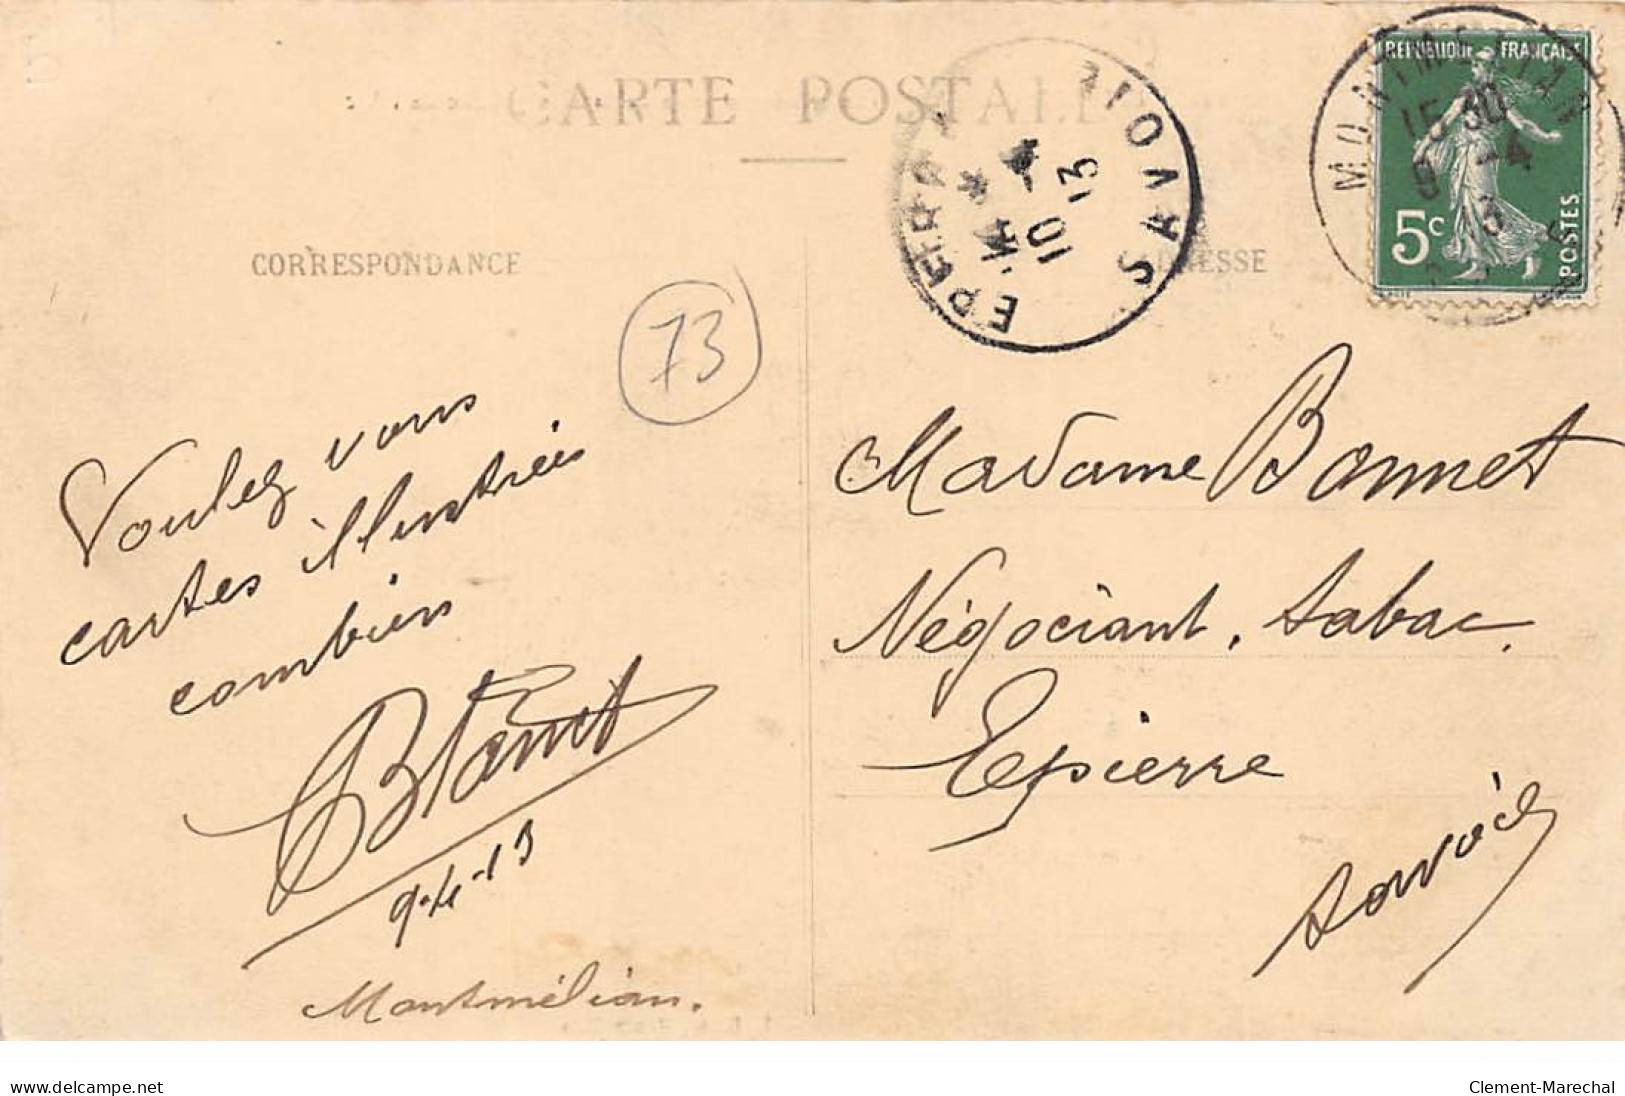 CARTE POSTALE
CORRESPONDANCE
73
Voulez vous
cartes illustrées
combien
9-4-13
Montmélian.
EPIERRE
14 -4
10 13
SAVOIE
RÉPUBLIQUE FRANÇAISE
5c
POSTES
15 30
9 -4
Madame Bonnet
Négociant, tabac,
Epierre
Savoie
www.delcampe.net
Clement-Marechal